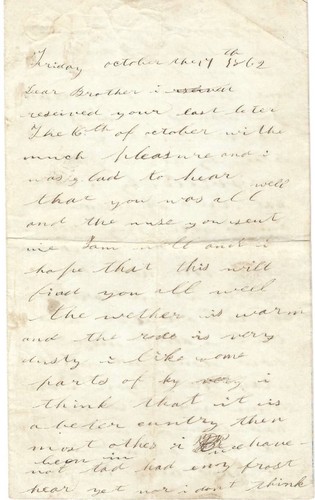 Friday october the 17 th 1862
Dear Brother i
reseived your last leter
The 6th of october withe
much pleasure and i
was glad to hear
that you was all well
and the nuse you sent
me I am well and i
hope that this will
find you all well
the wether is warm
and the rode is very
dusty i like some
parts of ky very i
think that it is
a beter cuntry then
most other i
been in we have
not had had eny frost
hear yet nor i dont think